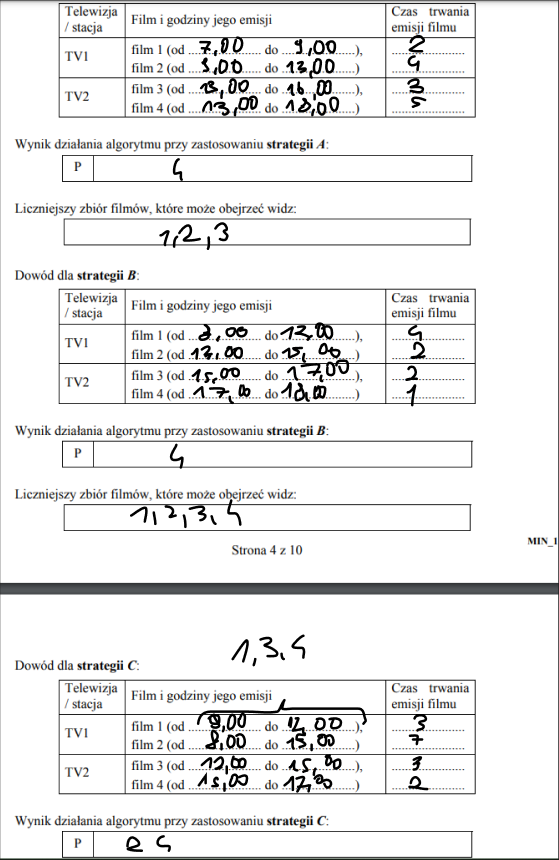 Telewizja / stacja Film i godziny jego emisji Czas trwania emisji filmu
TV1 film 1 (od 7,00 do 9,00), 2
film 2 (od 9,00 do 13,00) 4
TV2 film 3 (od 13,00 do 16,00), 3
film 4 (od 13,00 do 18,00) 5
Wynik działania algorytmu przy zastosowaniu strategii A:
P 4
Liczniejszy zbiór filmów, które może obejrzeć widz:
1,2,3
Dowód dla strategii B:
Telewizja / stacja Film i godziny jego emisji Czas trwania emisji filmu
TV1 film 1 (od 8,00 do 12,00), 4
film 2 (od 13,00 do 15,00) 2
TV2 film 3 (od 15,00 do 17,00), 2
film 4 (od 17,00 do 18,00) 1
Wynik działania algorytmu przy zastosowaniu strategii B:
P 4
Liczniejszy zbiór filmów, które może obejrzeć widz:
1,2,3,4
Strona 4 z 10
MIN_1
1,3,4
Dowód dla strategii C:
Telewizja / stacja Film i godziny jego emisji Czas trwania emisji filmu
TV1 film 1 (od 9,00 do 12,00), 3
film 2 (od 8,00 do 15,00) 7
TV2 film 3 (od 12,00 do 15,00), 3
film 4 (od 15,00 do 17,00) 2
Wynik działania algorytmu przy zastosowaniu strategii C:
P 4